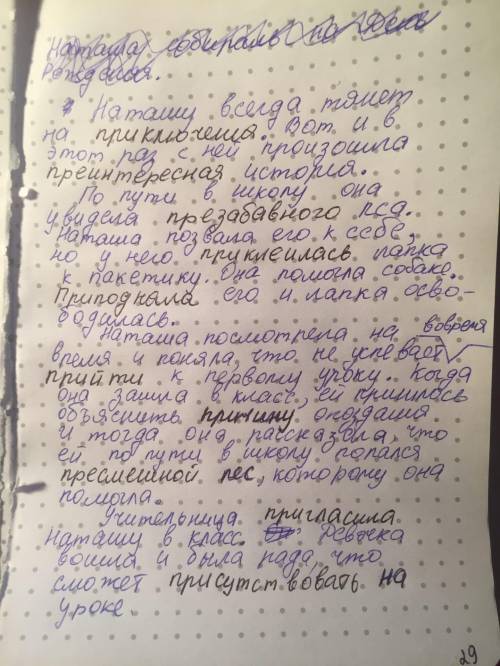 Наташа собиралась на день
рождения.
Наташу всегда тянет
на приключения. Вот и в
этот раз с ней произошла
преинтересная история.
По пути в школу она
увидела презабавного пса.
Наташа позвала его к себе,
но у него приклеилась лапка
к пакетику. Она помогла собаке.
Приподнала его и лапка осво-
бодилась.
Наташа посмотрела на
вовремя
время и поняла, что не успевает
прийти к первому уроку. Когда
она зашла в класс, ей пришлось
объяснить причину опоздания
И тогда она рассказала, что
ей по пути в школу попался
пресмешной пес, которому она
помогла.
Учительница пригласила
Наташу в класс. Девочка
вошла и была рада, что
сможет присутствовать на
уроке.
29